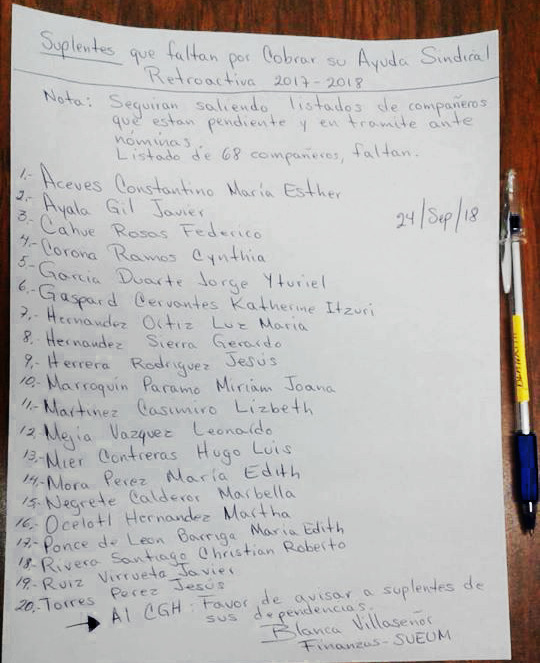 Suplentes que faltan por Cobrar su Ayuda Sindical
Retroactiva 2017-2018
Nota: Seguiran saliendo listados de compañeros
que estan pendiente y en tramite ante
nóminas.
Listado de 68 compañeros, faltan.
24/Sep/18
1.- Aceves Constantino María Esther
2.- Ayala Gil Javier
3.- Cahue Rosas Federico
4.- Corona Ramos Cynthia
5.- García Duarte Jorge Yturiel
6.- Gaspard Cervantes Katherine Itzuri
7.- Hernandez Ortiz Luz María
8.- Hernandez Sierra Gerardo
9.- Herrera Rodríguez Jesús
10.- Marroquin Paramo Miriam Joana
11.- Martínez Casimiro Lizbeth
12.- Mejia Vazquez Leonardo
13.- Mier Contreras Hugo Luis
14.- Mora Perez María Edith
15.- Negrete Calderor Marbella
16.- Ocelotl Hernandez Martha
17.- Ponce de Leon Barriga Maria Edith
18.- Rivera Santiago Christian Roberto
19.- Ruiz Virrueta Javier
20.- Torres Perez Jesús
Al CGH: Favor de avisar a suplentes de
sus dependencias.
Blanca Villaseñor
Finanzas-SUEUM